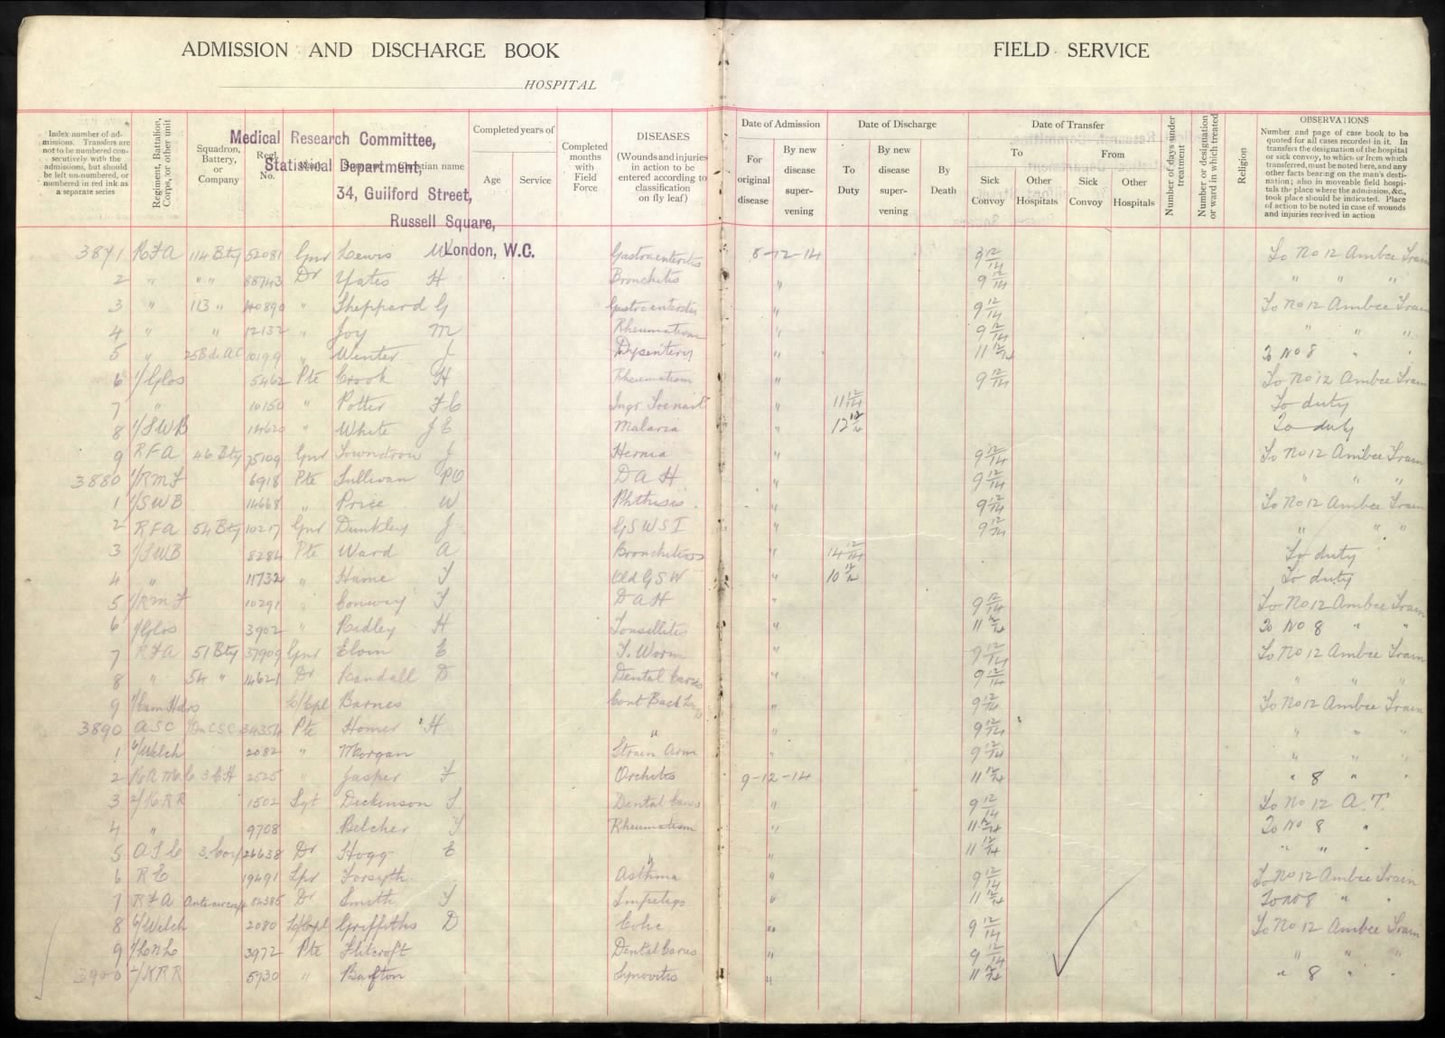 ADMISSION AND DISCHARGE BOOK
HOSPITAL
FIELD SERVICE
Medical Research Committee,
Statistical Department,
34, Guilford Street,
Russell Square,
London, W.C.
Index number of admissions. Transfers are not to be numbered consecutively with the admissions, but should be left un-numbered, or numbered in red ink as a separate series
Regiment, Battalion, Corps, or other unit
Squadron, Battery, or Company
Regl. No.
Christian name
Completed years of
Age
Service
Completed months with Field Force
DISEASES
(Wounds and injuries in action to be entered according to classification on fly leaf)
Date of Admission
For original disease
By new disease supervening
Date of Discharge
To Duty
By new disease supervening
By Death
Date of Transfer
To
Sick Convoy
Other Hospitals
From
Sick Convoy
Other Hospitals
Number of days under treatment
Number or designation or ward in which treated
Religion
OBSERVATIONS
Number and page of case book to be quoted for all cases recorded in it. In transfers the designation of the hospital or sick convoy, to which or from which transferred, must be noted here, and any other facts bearing on the man's destination; also in moveable field hospitals the place where the admission, &c., took place should be indicated. Place of action to be noted in case of wounds and injuries received in action
3871 RFA 114 Bty 52081 Gnr Lewis W Gastroenteritis 8-12-14 9 12/14 To No 12 Ambce Train
2 " " " 88743 Dr Yates H Bronchitis " 9 12/14 " " "
3 " 113 " 40890 " Sheppard G Gastroenteritis " 9 12/14 To No 12 Ambce Train
4 " " 12132 " Joy M Rheumatism " 9 12/14 " " "
5 " 25 Bde AC 10199 " Winter J Dysentery " 11 12/14 To No 8 " "
6 1/Glos 5462 Pte Crook H Rheumatism " 9 12/14 To No 12 Ambce Train
7 " 10150 " Potter FC Ingr Toenail " 11 12/14 To duty
8 1/SWB 14620 " White JE Malaria " 12 12/14 To duty
9 RFA 46 Bty 75109 Gnr J Hernia " 9 12/14 To No 12 Ambce Train
3880 1/RMF 6918 Pte Sullivan PO DAH " 9 12/14 " " "
1 1/SWB 14668 " Price W Phthisis " 9 12/14 To No 12 Ambce Train
2 RFA 54 Bty 10217 Gnr Dunkley J GSW SI " 9 12/14 " " "
3 1/SWB 8284 Pte Ward A Bronchitis " 14 12/14 To duty
4 " 11732 " Hame T Old GSW " 10 12/14 To duty
5 1/RMF 10291 " Conway T DAH " 9 12/14 To No 12 Ambce Train
6 1/Glos 3902 " Ridley H Tonsillitis " 11 12/14 To No 8 " "
7 RFA 51 Bty 37909 Gnr Elvin E T. Worm " 9 12/14 To No 12 Ambce Train
8 " 54 " 14621 Dr Randall D Dental Caries " 9 12/14 " " "
9 1/Cam Hdrs L/Cpl Barnes Cont Back " 9 12/14 To No 12 Ambce Train
3890 ASC Pte Homer H " " 9 12/14 " " "
1 1/Welch 2082 " Morgan Strain Arm " 9 12/14 " " "
2 RAMC 3 CH 2525 " Jasper F Orchitis 9-12-14 11 12/14 " 8 " "
3 2/KRR 1502 Sgt Dickinson T Dental Caries " 9 12/14 To No 12 A.T.
4 " 9708 Belcher T Rheumatism " 11 12/14 To No 8 "
5 ASC 3 Corp 26638 Dr Hogg E " " 11 12/14 " " "
6 RE 19491 Spr Forsyth Asthma " 9 12/14 To No 12 Ambce Train
7 RFA Antiaircraft 54385 Dr Smith T Impetigo " 11 12/14 To No 8 " "
8 1/Welch 2080 L/Cpl Griffiths D Colic " 9 12/14 To No 12 Ambce Train
9 3972 Pte Flitcroft Dental Caries " 9 12/14 " " "
3900 2/KRR 5930 " Barton Synovitis " 11 12/14 " 8 " "